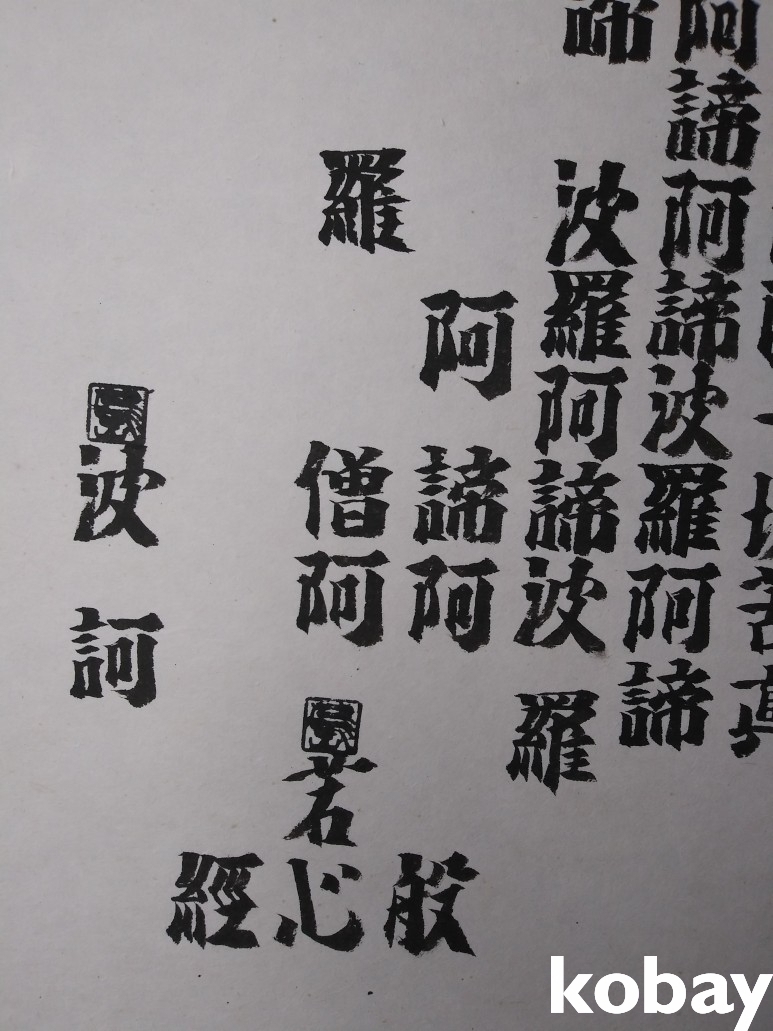 切苦真
阿諦阿諦波羅阿諦
諦 波羅阿諦波羅
阿諦阿
羅 僧阿
若
般心經
波訶
kobay